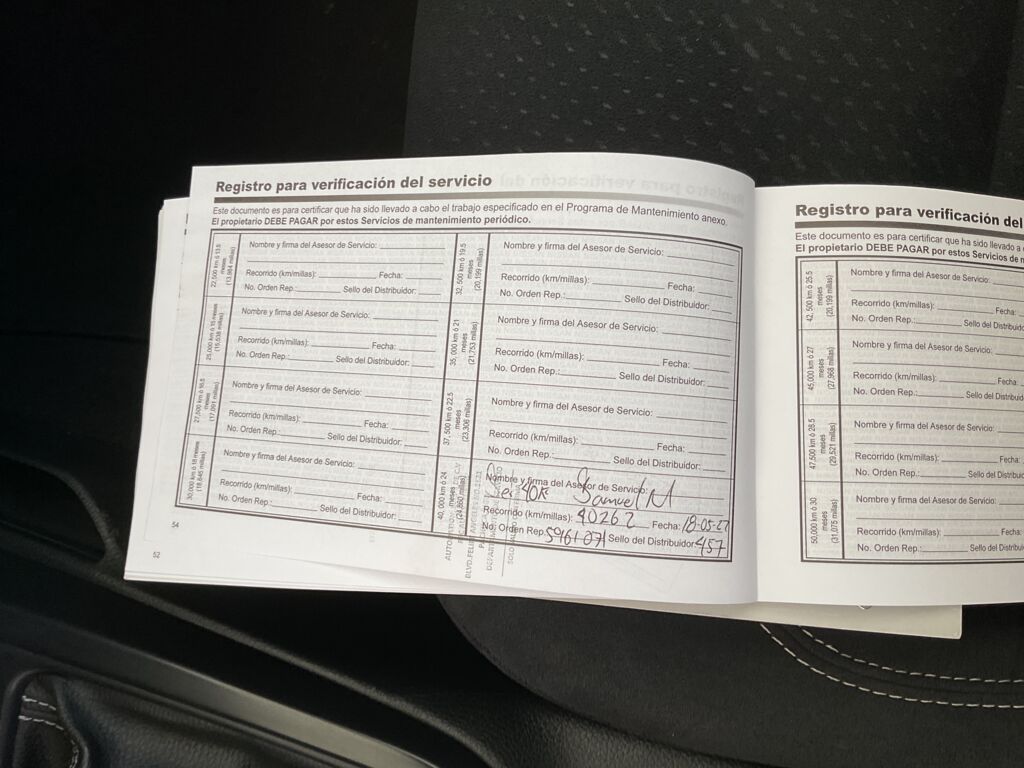 Registro para verificación del servicio
Este documento es para certificar que ha sido llevado a cabo el trabajo especificado en el Programa de Mantenimiento anexo.
El propietario DEBE PAGAR por estos Servicios de mantenimiento periódico.
22,500 km ó 13.5 meses (13,984 millas)
Nombre y firma del Asesor de Servicio:
Recorrido (km/millas): Fecha:
No. Orden Rep.: Sello del Distribuidor:
25,000 km ó 15 meses (15,538 millas)
Nombre y firma del Asesor de Servicio:
Recorrido (km/millas): Fecha:
No. Orden Rep.: Sello del Distribuidor:
27,500 km ó 16.5 meses (17,091 millas)
Nombre y firma del Asesor de Servicio:
Recorrido (km/millas): Fecha:
No. Orden Rep.: Sello del Distribuidor:
30,000 km ó 18 meses (18,645 millas)
Nombre y firma del Asesor de Servicio:
Recorrido (km/millas): Fecha:
No. Orden Rep.: Sello del Distribuidor:
32, 500 km ó 19.5 meses (20,199 millas)
Nombre y firma del Asesor de Servicio:
Recorrido (km/millas): Fecha:
No. Orden Rep.: Sello del Distribuidor:
35, 000 km ó 21 meses (21,753 millas)
Nombre y firma del Asesor de Servicio:
Recorrido (km/millas): Fecha:
No. Orden Rep.: Sello del Distribuidor:
37, 500 km ó 22.5 meses (23,306 millas)
Nombre y firma del Asesor de Servicio:
Recorrido (km/millas): Fecha:
No. Orden Rep.: Sello del Distribuidor:
40, 000 km ó 24 meses (24,860 millas)
Nombre y firma del Asesor de Servicio:
Ser 40K Samuel M
Recorrido (km/millas): 40262 Fecha: 18-05-27
No. Orden Rep. 5961071 Sello del Distribuidor: 457
54
52
Registro para verificación del
Este documento es para certificar que ha sido llevado a
El propietario DEBE PAGAR por estos Servicios de
42, 500 km ó 25.5 meses (20,199 millas)
Nombre y firma del Asesor de Servicio:
Recorrido (km/millas):
No. Orden Rep.: Sello del Distribuid
45,000 km ó 27 meses (27,968 millas)
Nombre y firma del Asesor de Servicio:
Recorrido (km/millas):
No. Orden Rep.: Sello del Distribuid
47,500 km ó 28.5 meses (29,521 millas)
Nombre y firma del Asesor de Servicio:
Recorrido (km/millas):
No. Orden Rep.: Sello del Distribui
50,000 km ó 30 meses (31,075 millas)
Nombre y firma del Asesor de Servicio:
Recorrido (km/millas):
No. Orden Rep.: Sello del Distribui